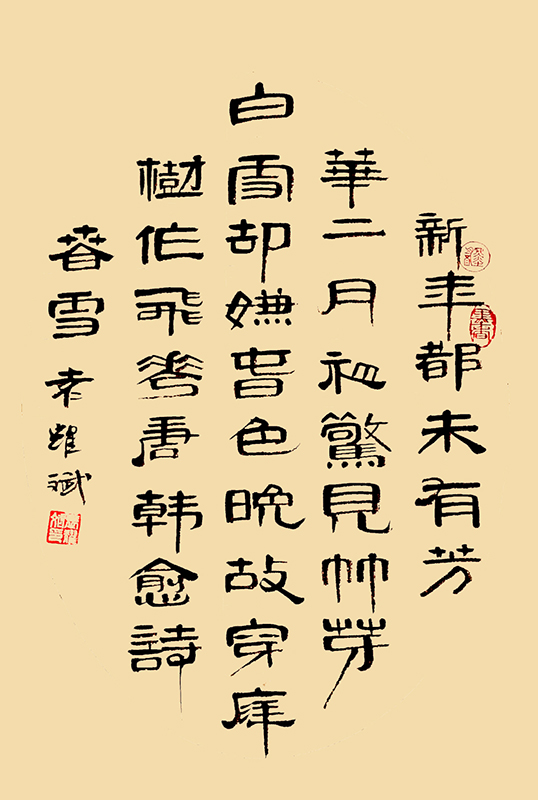 新年都未有芳
華二月初驚見艸芽
白雪却嫌春色晚故穿庭
樹作飛花唐韓愈詩
春雪